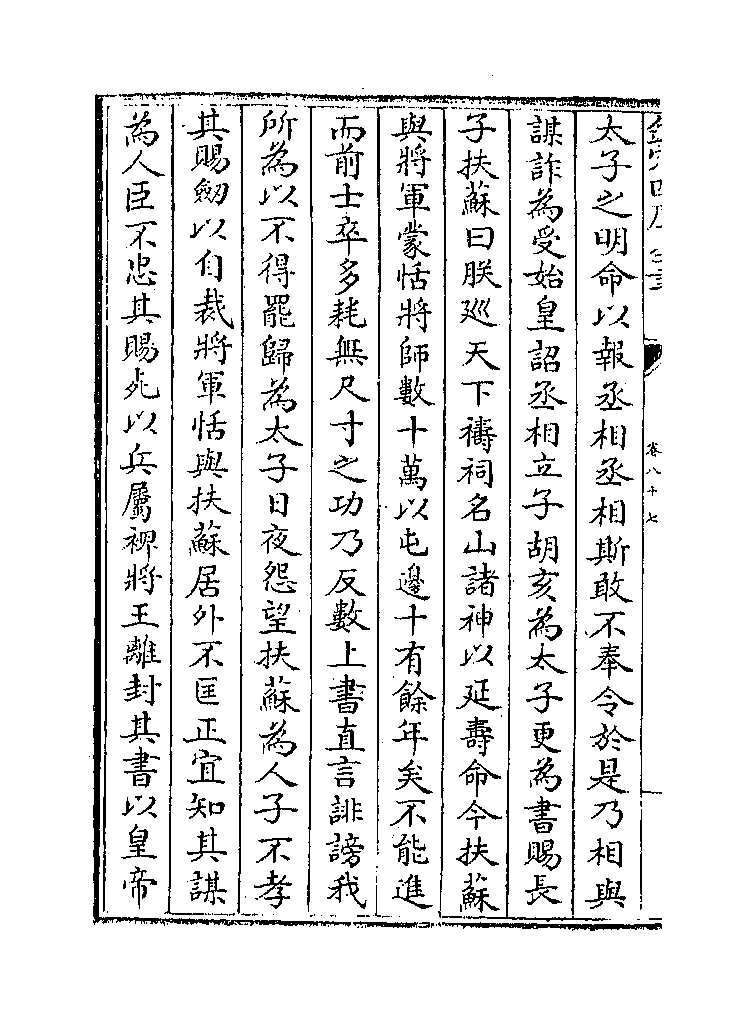 太子之明命以報丞相丞相斯敢不奉令於是乃相與
謀詐為受始皇詔丞相立子胡亥為太子更為書賜長
子扶蘇曰朕巡天下禱祠名山諸神以延壽命今扶蘇
與將軍蒙恬將師數十萬以屯邊十有餘年矣不能進
而前士卒多耗無尺寸之功乃反數上書直言誹謗我
所為以不得罷歸為太子日夜怨望扶蘇為人子不孝
其賜劒以自裁將軍恬與扶蘇居外不匡正宜知其謀
為人臣不忠其賜死以兵屬裨將王離封其書以皇帝
卷八十七